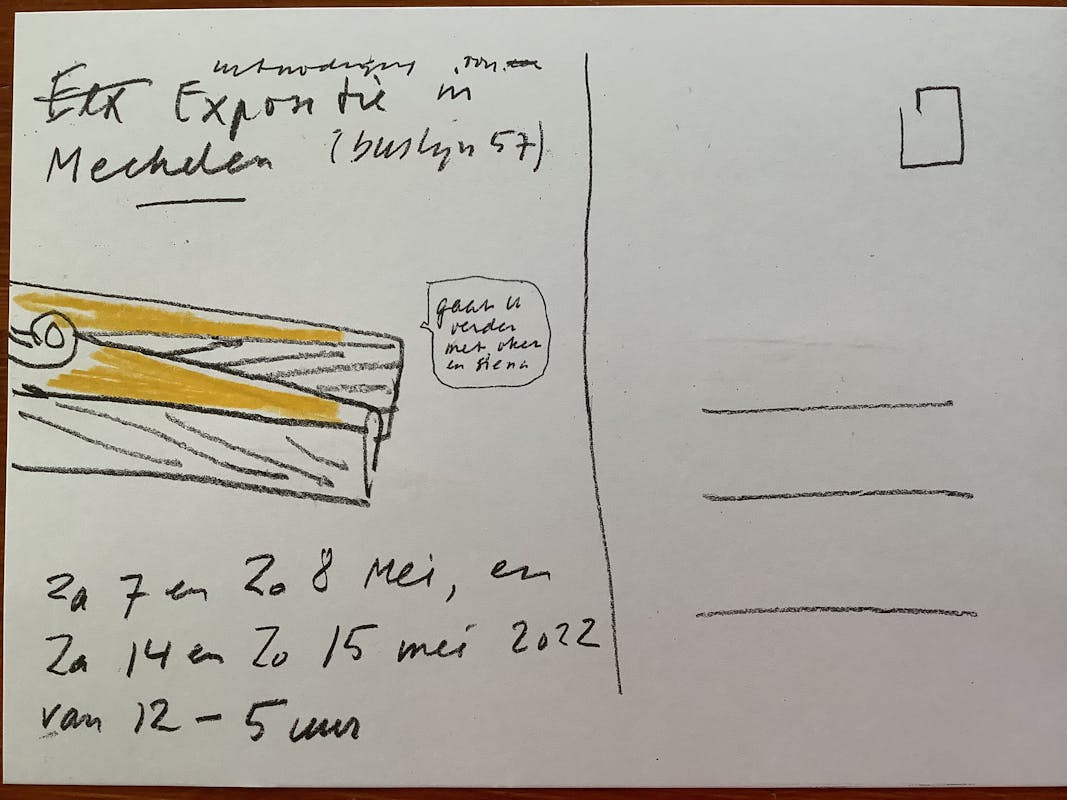 uitnodiging
Expositie in
Mechelen (buslijn 57)
gaat u
verder
met oker
en siena
za 7 en Zo 8 Mei, en
Za 14 en Zo 15 mei 2022
van 12 - 5 uur